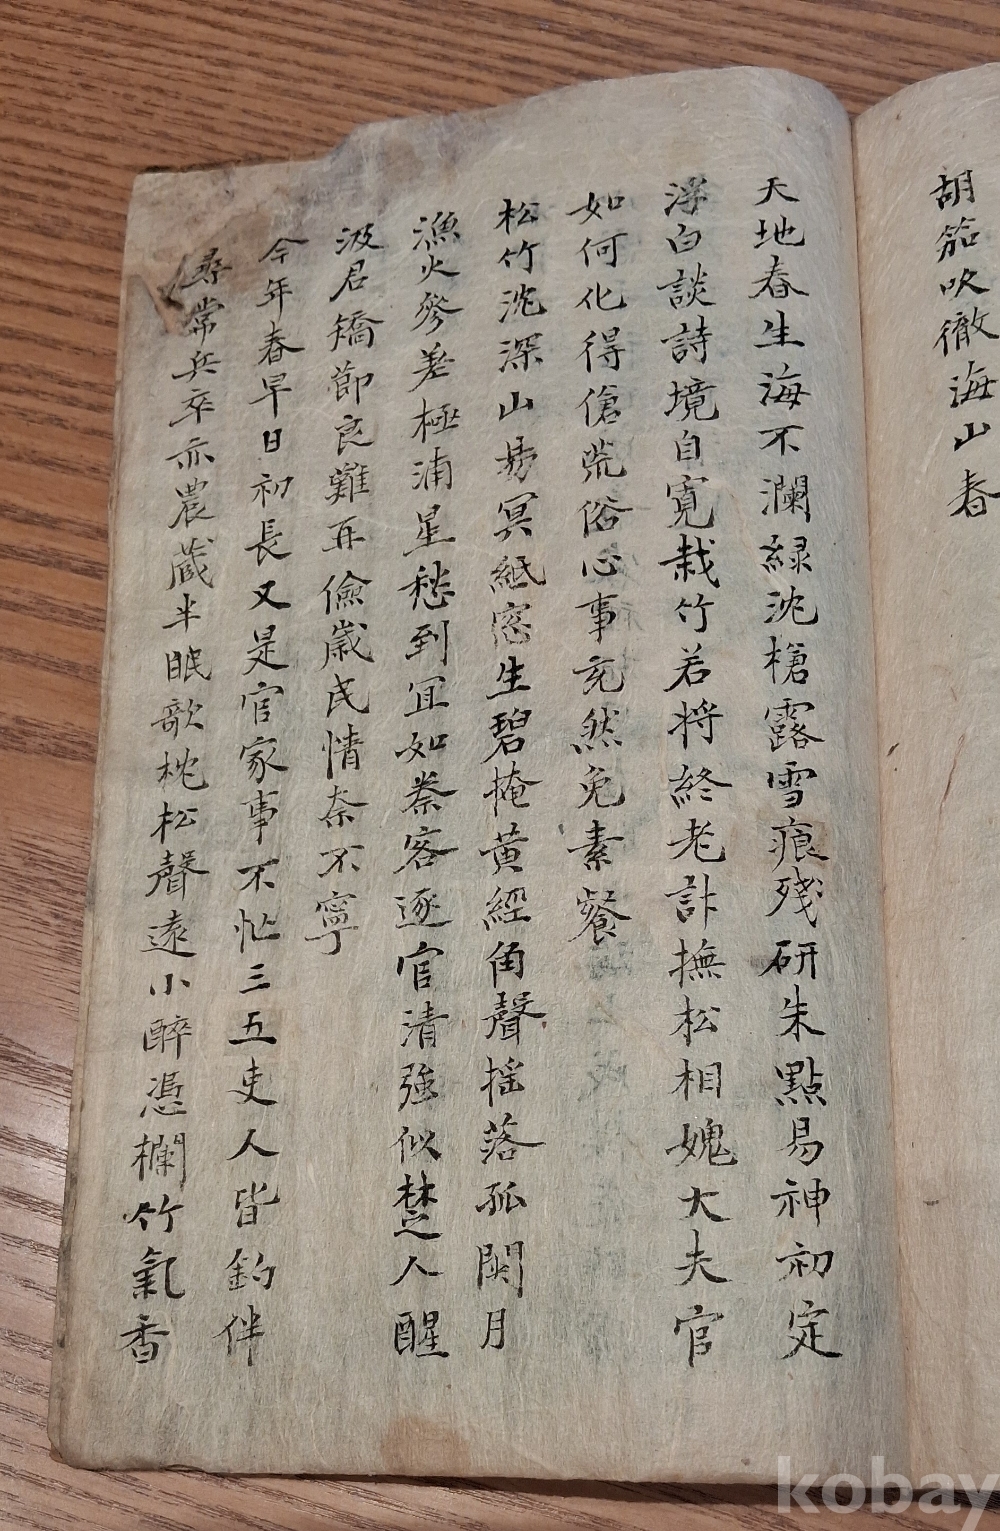 胡笳吹徹海山春
天地春生海不瀾綠沈槍露雪痕殘研朱點易神初定
浮白談詩境自寬栽竹若將終老計撫松相媿大夫官
如何化得傖荒俗心事充然免素餐
松竹沈深山易冥紙窓生碧掩黃經角聲搖落孤閿月
漁火參差極浦星愁到冝如秦客逐官清強似楚人醒
汲君矯節良難再儉歲民情柰不寧
今年春早日初長又是官家事不忙三五吏人皆釣伴
尋常兵卒亦農蔵半眠欹枕松聲遠小醉憑欄竹氣香
kobay